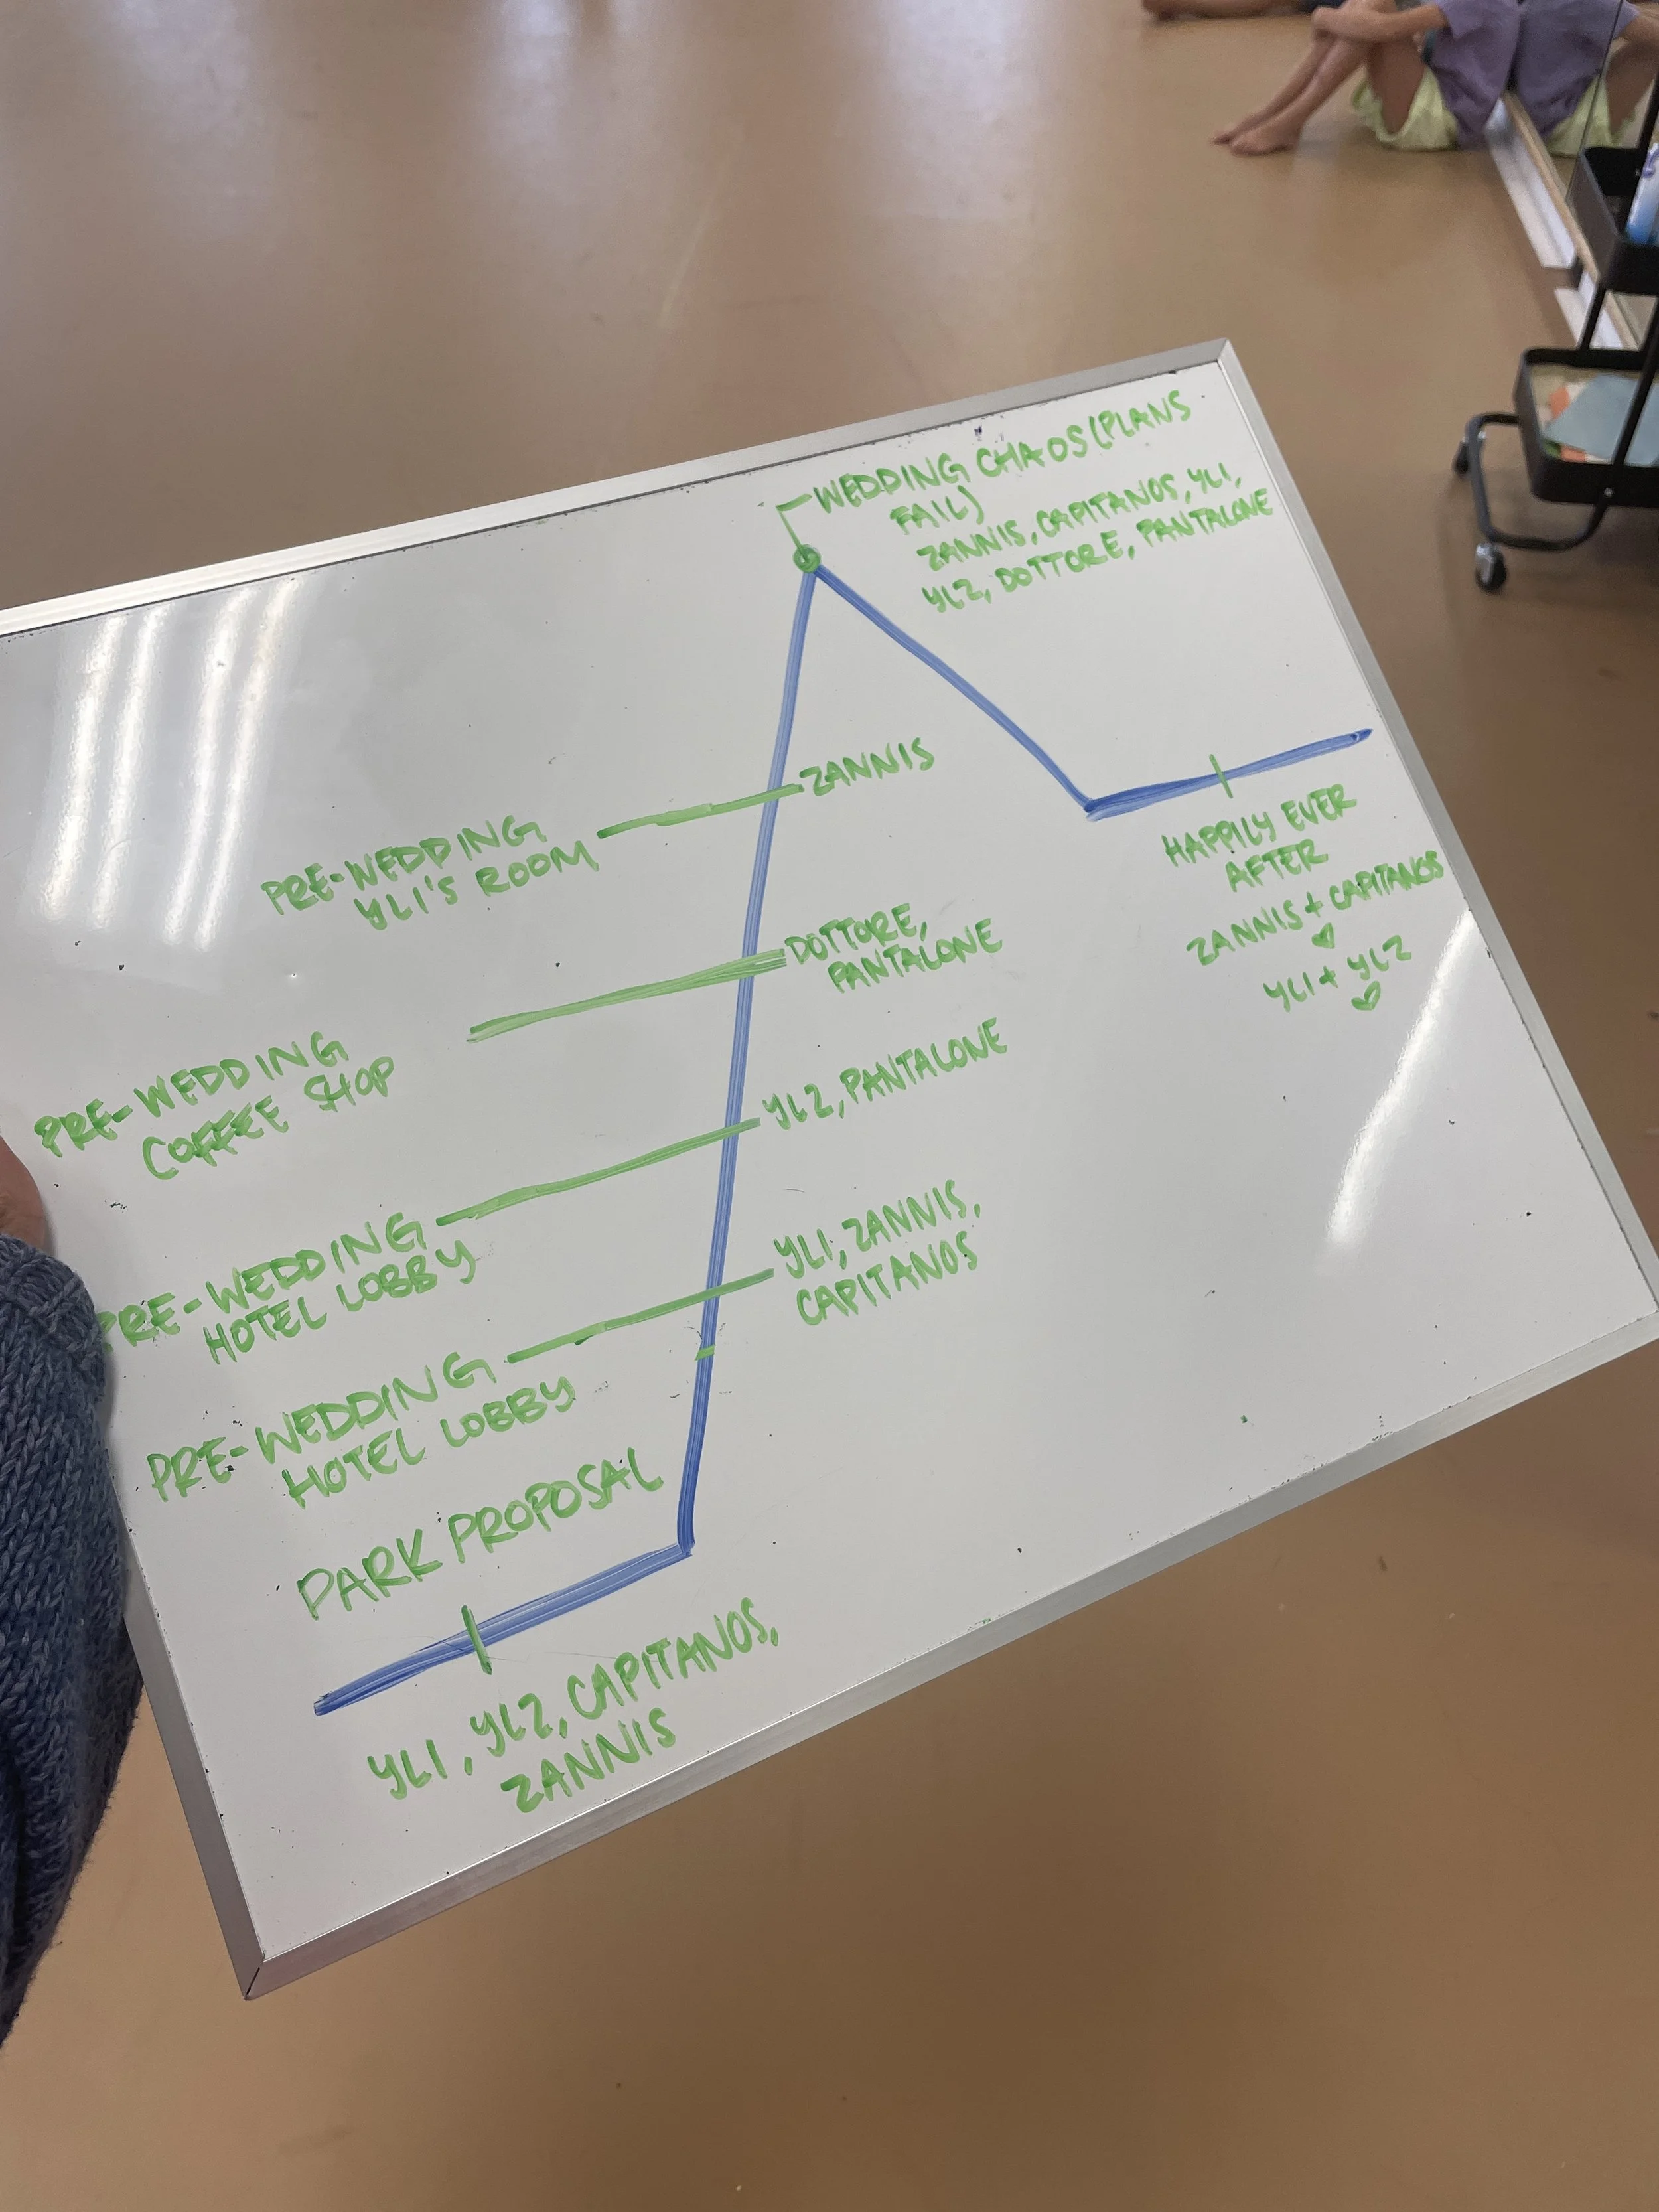 WEDDING CHAOS (PLANS
FAIL)
ZANNIS, CAPITANOS, YL1,
YL2, DOTTORE, PANTALONE
PRE-WEDDING
YL1'S ROOM
ZANNIS
PRE-WEDDING
COFFEE SHOP
DOTTORE,
PANTALONE
PRE-WEDDING
HOTEL LOBBY
YL2, PANTALONE
PRE-WEDDING
HOTEL LOBBY
YL1, ZANNIS,
CAPITANOS
PARK PROPOSAL
YL1, YL2, CAPITANOS,
ZANNIS
HAPPILY EVER
AFTER
ZANNIS + CAPITANOS
YL1 + YL2